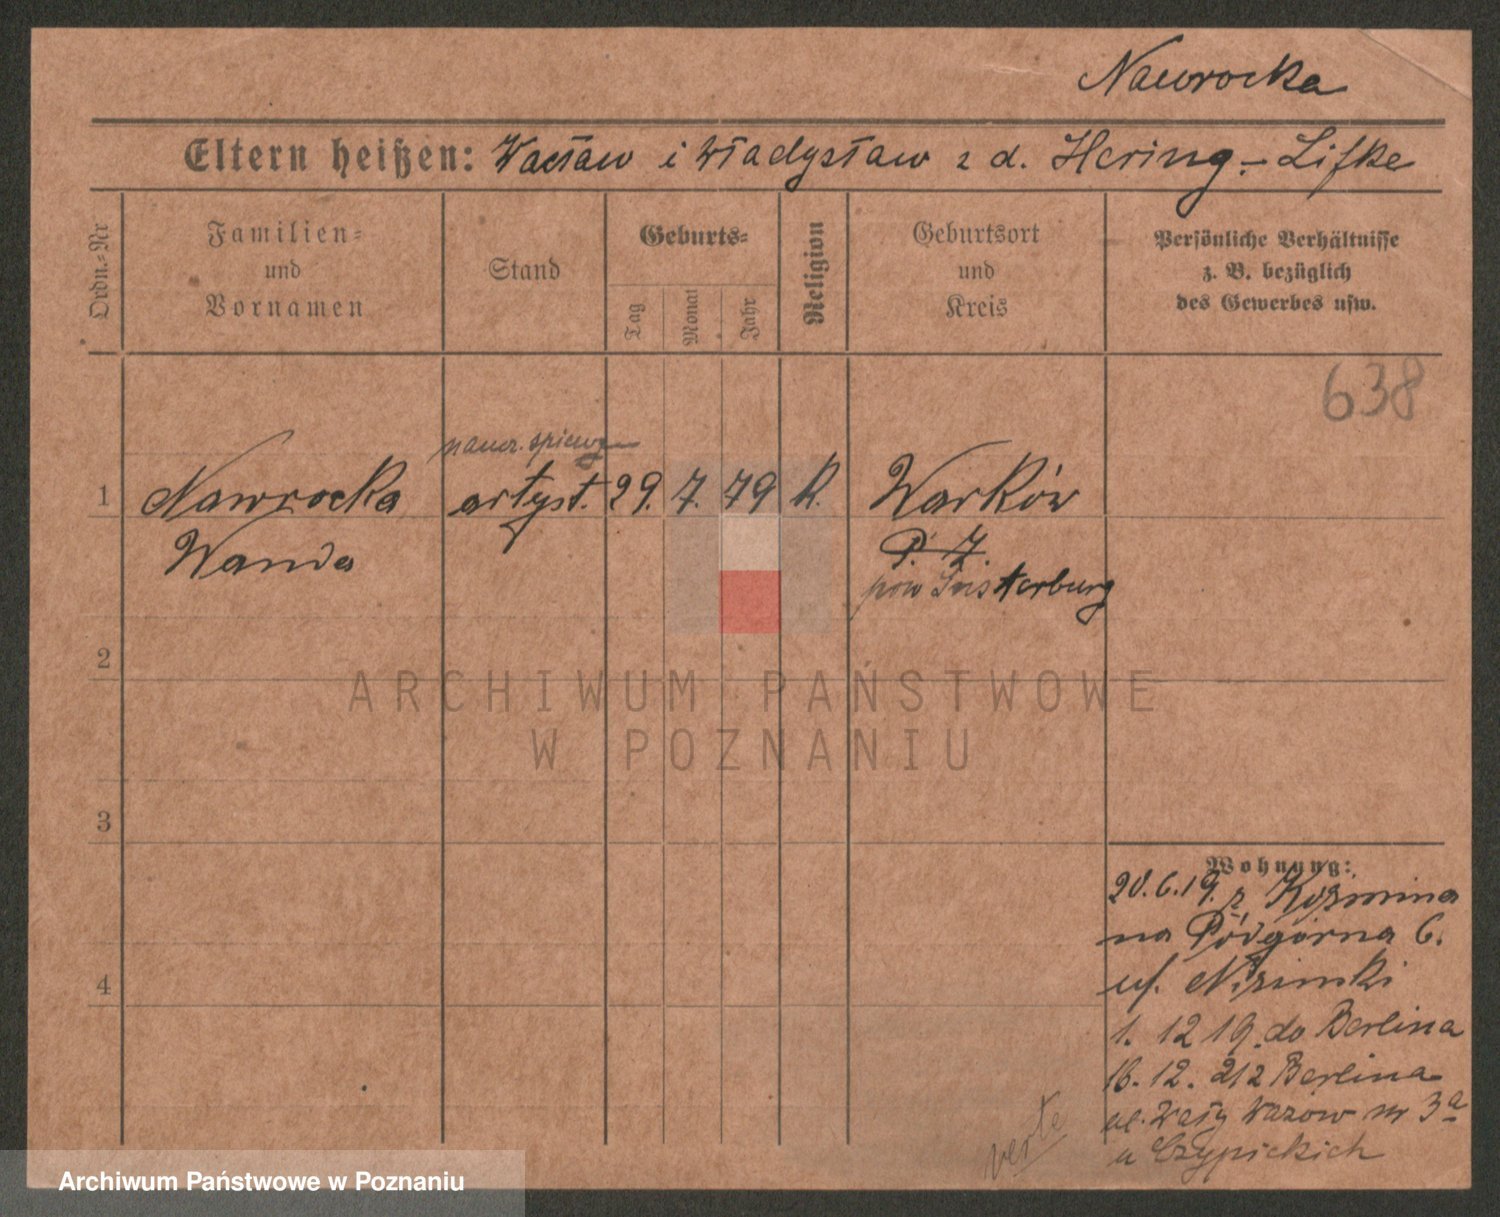 Nawrocka
Eltern heißen: Wacław i Władysław z d. Hering - Lifke
Ordn.-Nr
Familien-
und
Vornamen
Stand
Geburts-
Tag
Monat
Jahr
Religion
Geburtsort
und
Kreis
Persönliche Verhältnisse
z. B. bezüglich
des Gewerbes usw.
638
naucz. śpiewu
1 Nawrocka artyst. 29. 7. 79 K. Warków
Wanda
P. Z.
pow Insterburg
2
ARCHIWUM PAŃSTWOWE
W POZNANIU
3
Wohnung:
20.6.19. z Koźmina
na Podgórna 6.
4
1. 12 19. do Berlina
16. 12. 21 z Berlina
ul. Wały Wazów nr 3a
u Czypickich
verte
Archiwum Państwowe w Poznaniu